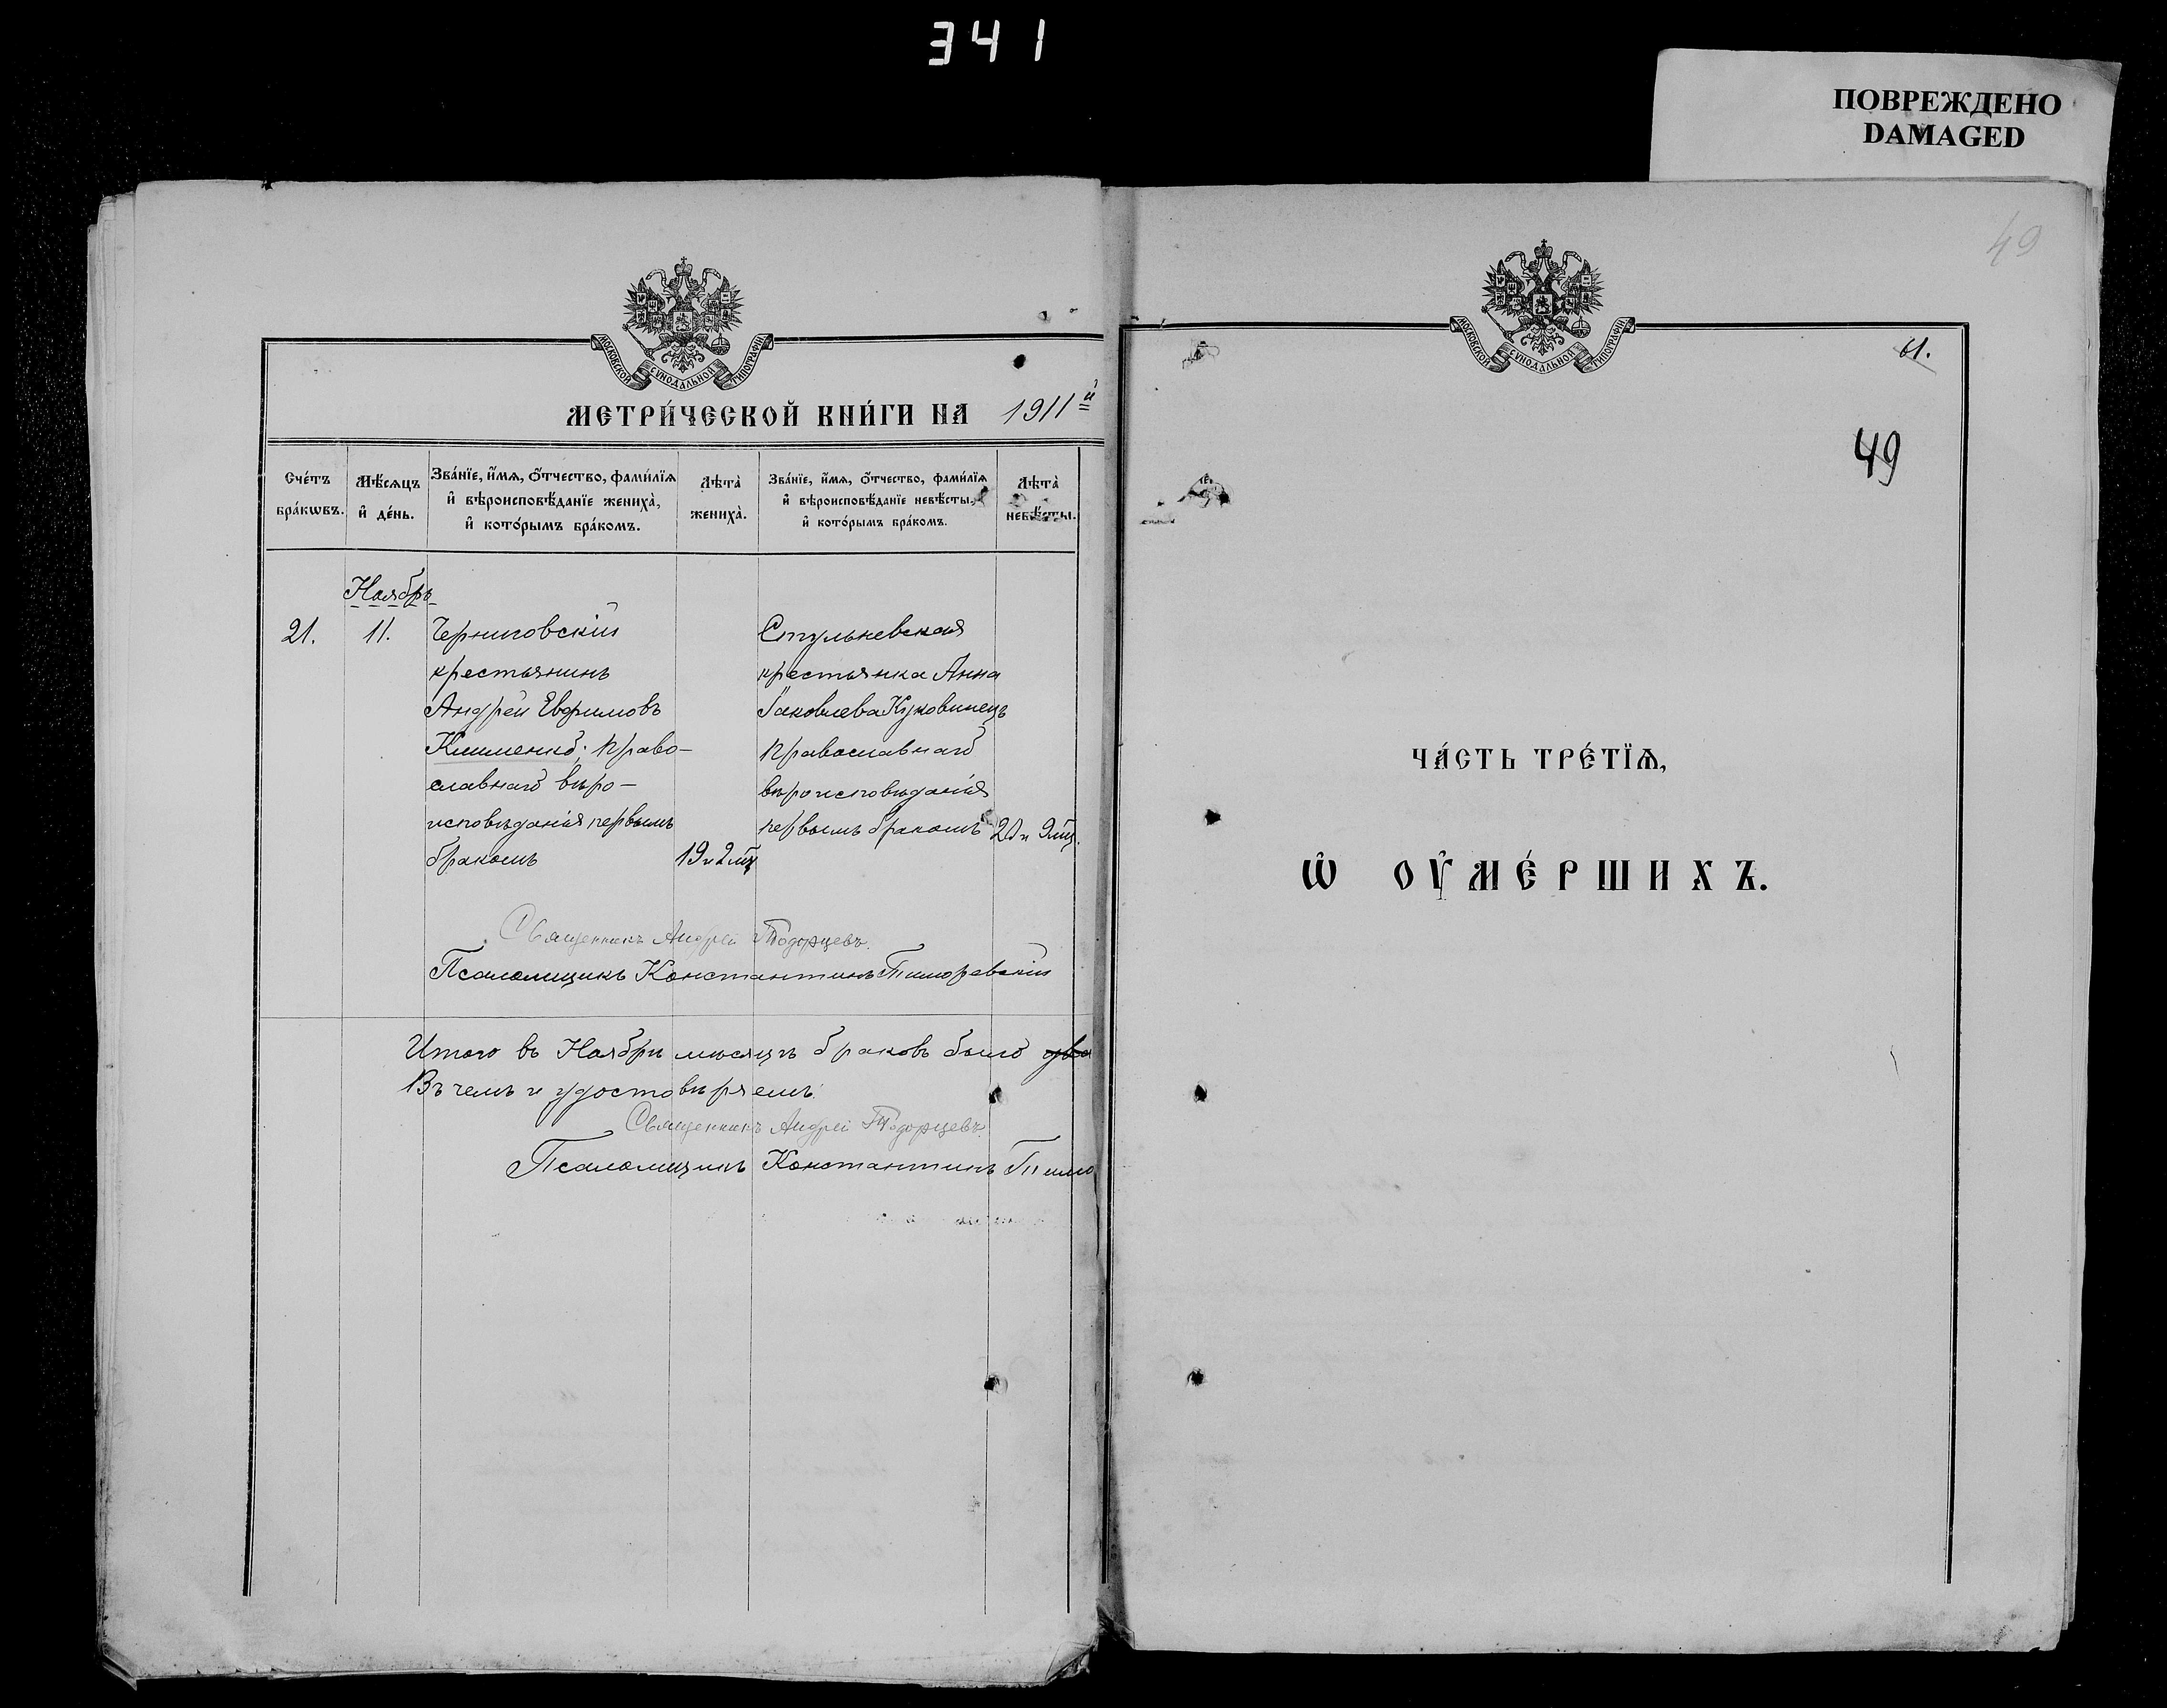 341
ПОВРЕЖДЕНО
DAMAGED
МОСКОВСКОЙ СѴНОДАЛЬНОЙ ТИПОГРАФІИ
МЕТРИ́ЧЕСКОЙ КНИ́ГИ НА 1911й
Сче́тъ бра́кѡвъ.
Мѣ́сяцъ и҆ де́нь.
Зва́нїе, и҆́мѧ, ѻ҆́тчество, фами́лїѧ и҆ вѣроисповѣ́данїе жениха̀, и҆ кото́рымъ бра́комъ.
Лѣта̀ жениха̀.
Зва́нїе, и҆́мѧ, ѻ҆́тчество, фами́лїѧ и҆ вѣроисповѣ́данїе невѣ́сты, и҆ кото́рымъ бра́комъ.
Лѣта̀ невѣ́сты.
Ноябрь
21.
11.
Черниговскій
крестьянинъ
Андрей Евфимовъ
Клименко; право-
славнаго вѣро-
исповѣданія первымъ
бракомъ
19 и 2 мц
Стульневская
крестьянка Анна
Іаковлева Куковинецъ
православнаго
вѣроисповѣданія
первымъ бракомъ
20 и 9 мц.
Священникъ Андрей
Псаломщикъ Константинъ
Итого въ Ноябрѣ мѣсяцѣ браковъ было два
Въ чемъ и удостовѣряемъ:
Священникъ Андрей
Псаломщикъ Константинъ
49
МОСКОВСКОЙ СѴНОДАЛЬНОЙ ТИПОГРАФІИ
61.
49
ЧА́СТЬ ТРЕ́ТЇѦ,
Ѡ҆ ОУ҆МЕ́РШИХЪ.